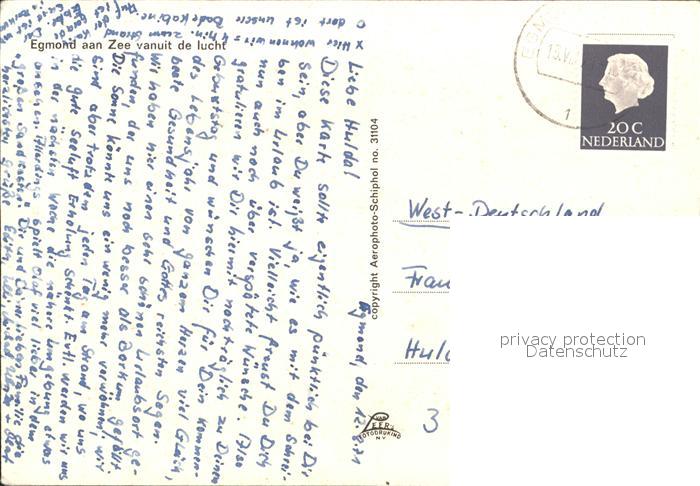 x Hier wohnen wir = 4 min. zum Strand
o dort ist unsere Badekabine.
Egmond aan Zee vanuit de lucht
Egmond, den 12.8.71
Liebe Hulda!
Diese Karte sollte eigentlich pünktlich bei Dir
sein, aber Du weißt ja, wie es mit dem Schrei-
ben im Urlaub ist. Vielleicht freust Du Dich
nun auch noch über verspätete Wünsche. Also
gratulieren wir Dir hiermit nachträglich zu Deinem
Geburtstag und wünschen Dir für Dein kommen-
des Lebensjahr von ganzem Herzen viel Glück,
beste Gesundheit und Gottes reichsten Segen.
Wir haben hier einen sehr schönen Urlaubsort ge-
funden, der uns noch besser als Borkum gefällt
Die Sonne könnte uns ein wenig mehr verwöhnen, wir
sind aber trotzdem jeden Tag am Strand, wo uns
die gute Seeluft Erholung schenkt. Evtl. werden wir uns
in der nächsten Woche die nähere Umgebung etwas
ansehen. Allerdings spielt Olaf viel lieber in dem
"großen Sandkasten". Dir und Deiner lieben Familie
herzlichste Grüße
copyright Aerophoto-Schiphol no. 31104
VAN
LEER's
FOTODRUKIND
N.V.
EGM
13.VIII
1
20 C
NEDERLAND
West-Deutschland
Frau
Huld
3
privacy protection
Datenschutz